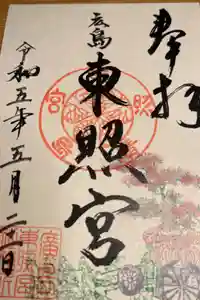 奉拝
広島
東照宮
令和五年五月二十一日